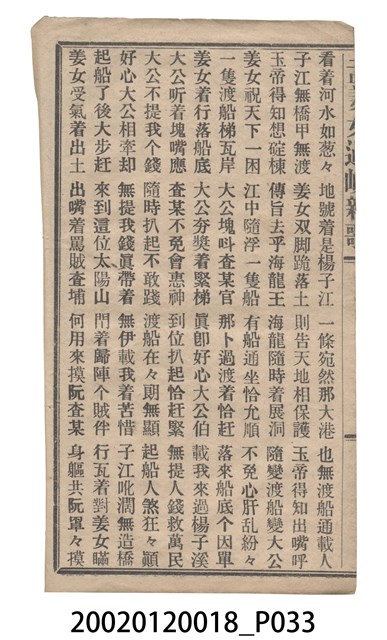 孟姜女過峽新歌
看着河水如葱々 地號着是楊子江 一條宛然那大港 也無渡船通載人
子江無橋甲無渡 姜女双脚跪落土 則告天地相保護 玉帝得知出嘴呼
玉帝得知想碇棟 傳旨去乎海龍王 海龍隨時着展洞 隨變渡船變大公
姜女祝天下一困 江中隨浮一隻船 有船通坐恰允順 不免心肝乱紛々
一隻渡船梯瓦岸 大公塊呌查某官 那卜過渡着恰赶 落來船底个因單
姜女着行落船底 大公夯獎着緊梯 眞卽好心大公伯 載我來過楊子溪
大公听着塊嘴應 查某不免會惠神 到位扒起恰赶緊 無提人錢救萬民
大公不提我个錢 隨時扒起不敢踐 渡船在々朗無顯 起船人煞狂々顚
好心大公相牽却 無提我錢眞帶着 無伊載我着苦惜 子江吪濶無造橋
起船了後大步赶 來到這位太陽山 門着歸陣个賊伴 行瓦着對姜女瞞
姜女受氣着出土 出嘴着罵賊查埔 何用來摸阮查某 身軀共阮罩々摸
20020120018_P033